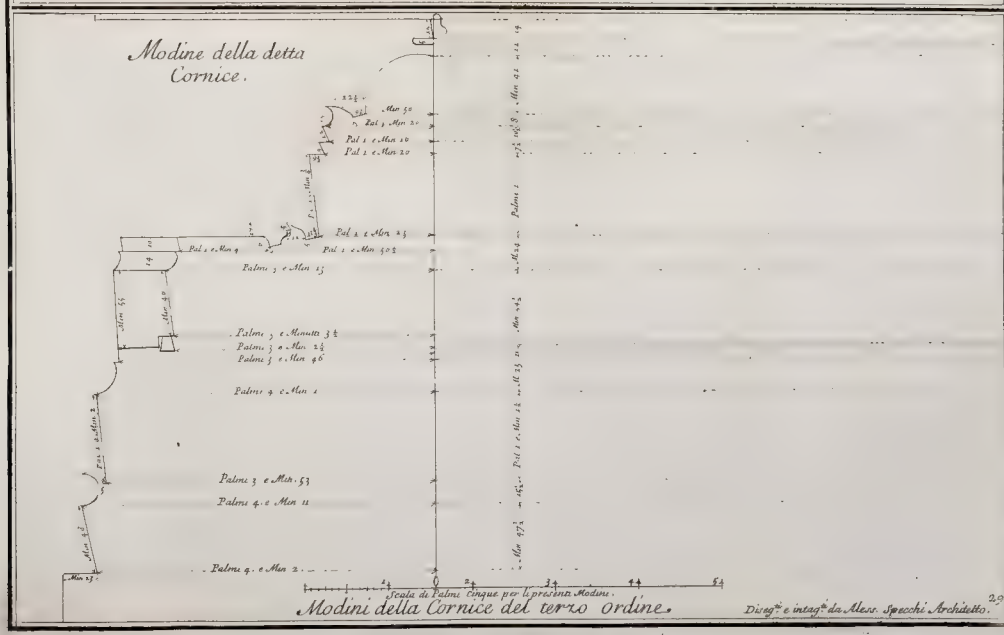 Modine della detta
Cornice.
22½
Min 52
Pal 1 Min 20
Pal 1 e Min 16
Pal 1 e Min 20
Pal 1 e Min 25
Pal 1 e Min 9
Pal 1 e Min 50½
10
14
Palmi 3 e Min 15
Min 55
Min 40
Palmi 3 e Minutti 3½
Palmi 3 e Min 2½
Palmi 3 e Min 46
Palmi 4 e Min 1
Pal 1 e Min 2
Palmi 3 e Min. 53
Palmi 4. e Min 11
Min 48
Palmi 4. e Min 2
Min 25
0 1 2 3 4 5
Scala di Palmi Cinque per li presenti Modini.
Modini della Cornice del terzo ordine.
Diseg.º e intag.º da Aless. Specchi Architetto.
29